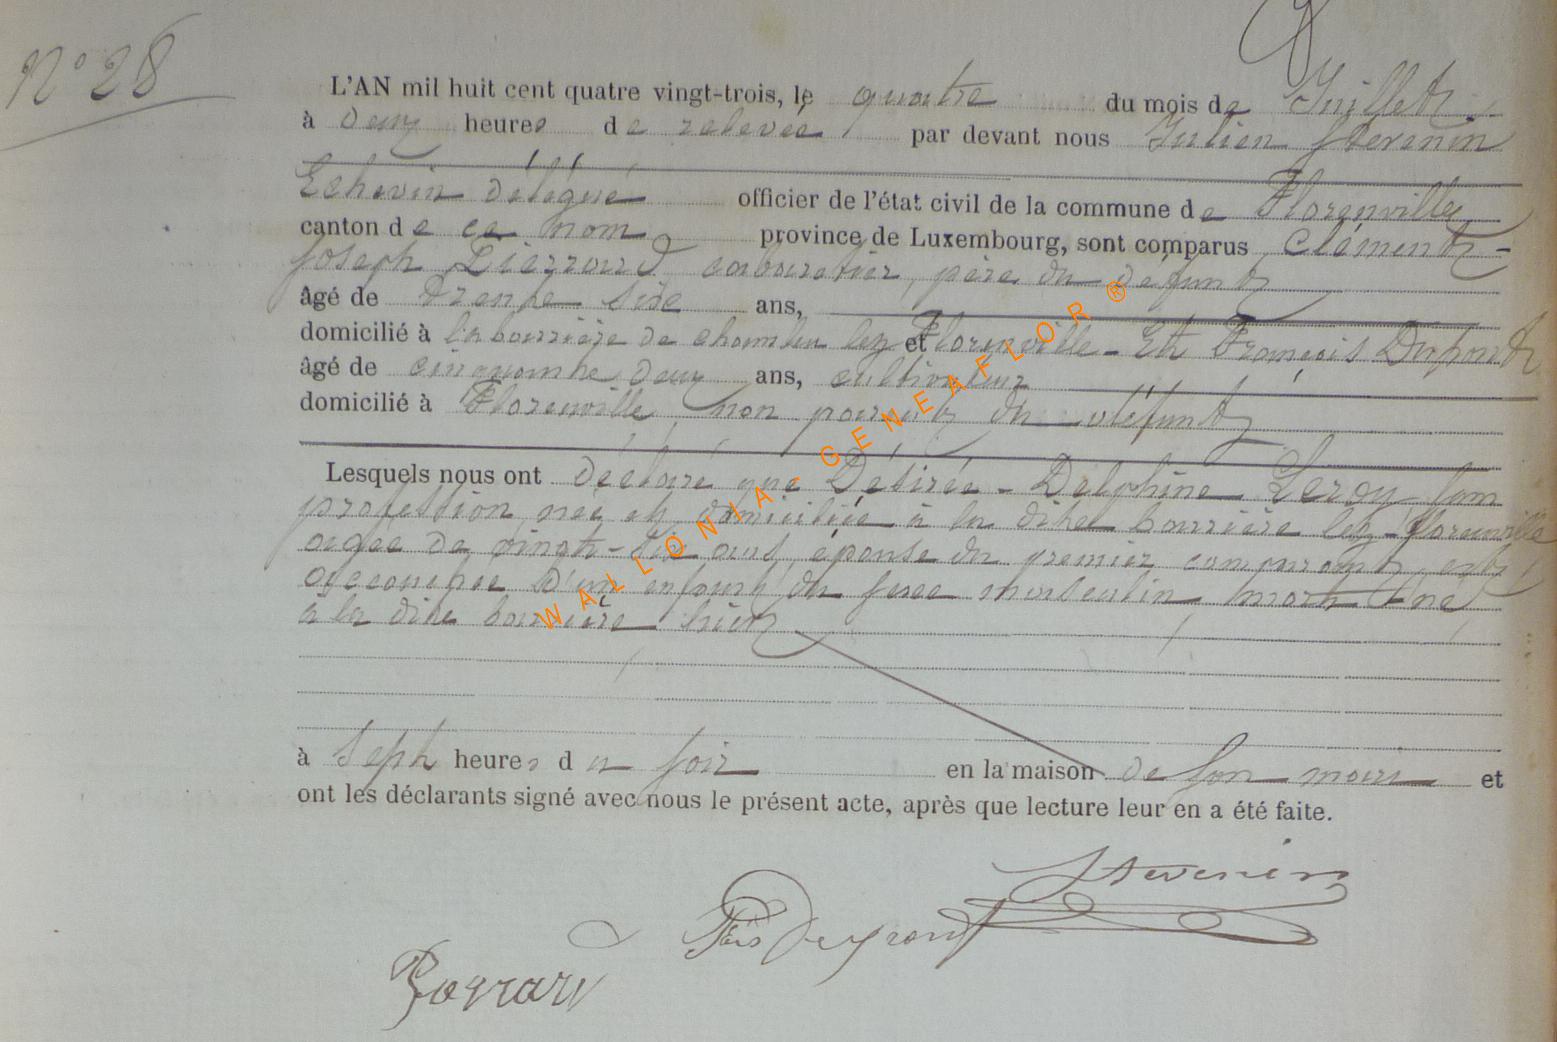 N° 28
L'AN mil huit cent quatre vingt-trois, le quatre du mois de Juillet
à deux heures de relevée par devant nous Julien Stevenin
Echevin délégué officier de l'état civil de la commune de Florenville
canton de ce nom province de Luxembourg, sont comparus Clément-
Joseph Pierrard cabaretier, père du défunt
âgé de Trente six ans,
domicilié à la barrière de lez et Florenville - Et François Dupont
âgé de cinquante deux ans, cultivateur
domicilié à Florenville, non parent du défunt
Lesquels nous ont déclaré que Désirée-Delphine Leroy sans
profession, née et domiciliée à la dite barrière lez-Florenville
agée de vingt-six ans, épouse du premier comparant, est
accouchée d'un enfant du sexe masculin mort-né,
à la dite barrière hier
à Sept heures du soir en la maison de son mari et
ont les déclarants signé avec nous le présent acte, après que lecture leur en a été faite.
Stevenin
WALLONIA - GENEAFLOR ®